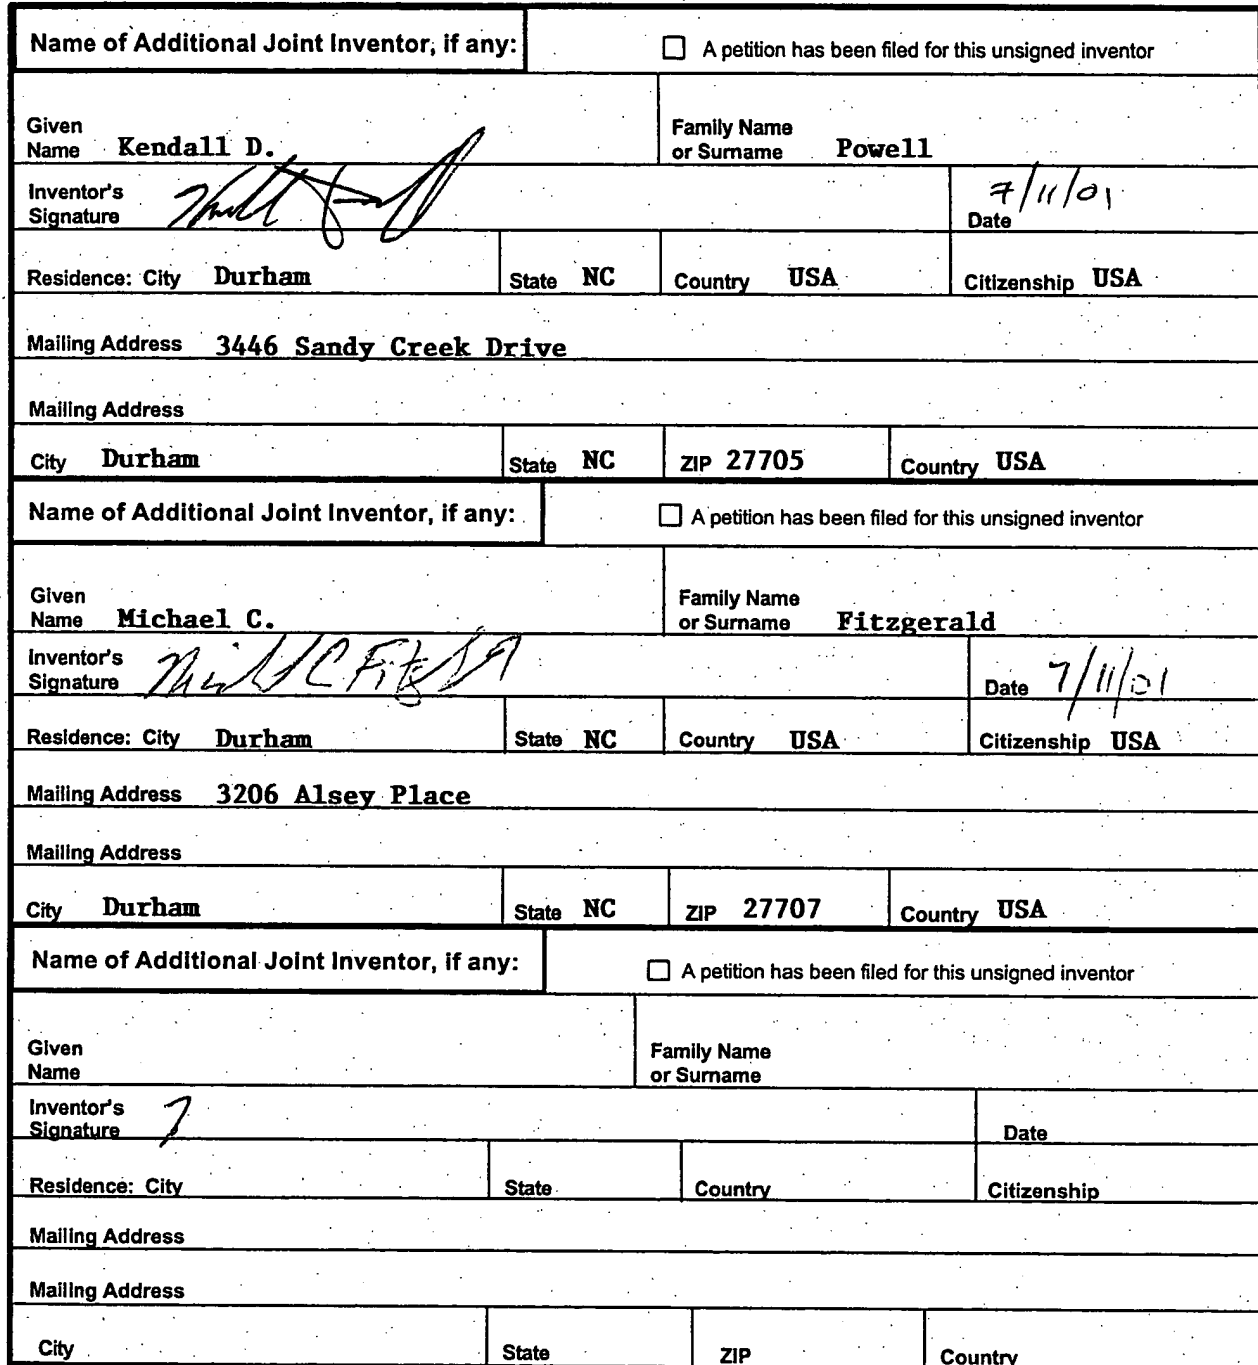 Name of Additional Joint Inventor, if any: ☐ A petition has been filed for this unsigned inventor
Given
Name Kendall D. Family Name
or Surname Powell
Inventor's
Signature Date 7/11/01
Residence: City Durham State NC Country USA Citizenship USA
Mailing Address 3446 Sandy Creek Drive
Mailing Address
City Durham State NC ZIP 27705 Country USA
Name of Additional Joint Inventor, if any: ☐ A petition has been filed for this unsigned inventor
Given
Name Michael C. Family Name
or Surname Fitzgerald
Inventor's
Signature Date 7/11/01
Residence: City Durham State NC Country USA Citizenship USA
Mailing Address 3206 Alsey Place
Mailing Address
City Durham State NC ZIP 27707 Country USA
Name of Additional Joint Inventor, if any: ☐ A petition has been filed for this unsigned inventor
Given
Name Family Name
or Surname
Inventor's
Signature Date
Residence: City State Country Citizenship
Mailing Address
Mailing Address
City State ZIP Country